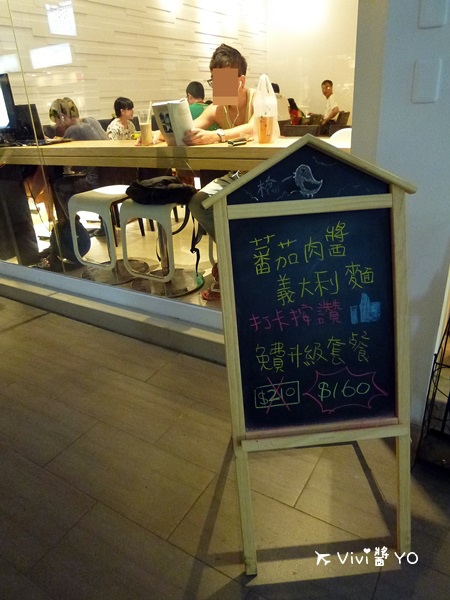 蕃茄肉醬
義大利麵
打卡按讚
免費升級套餐
$210 $160
Vivi醬 YO